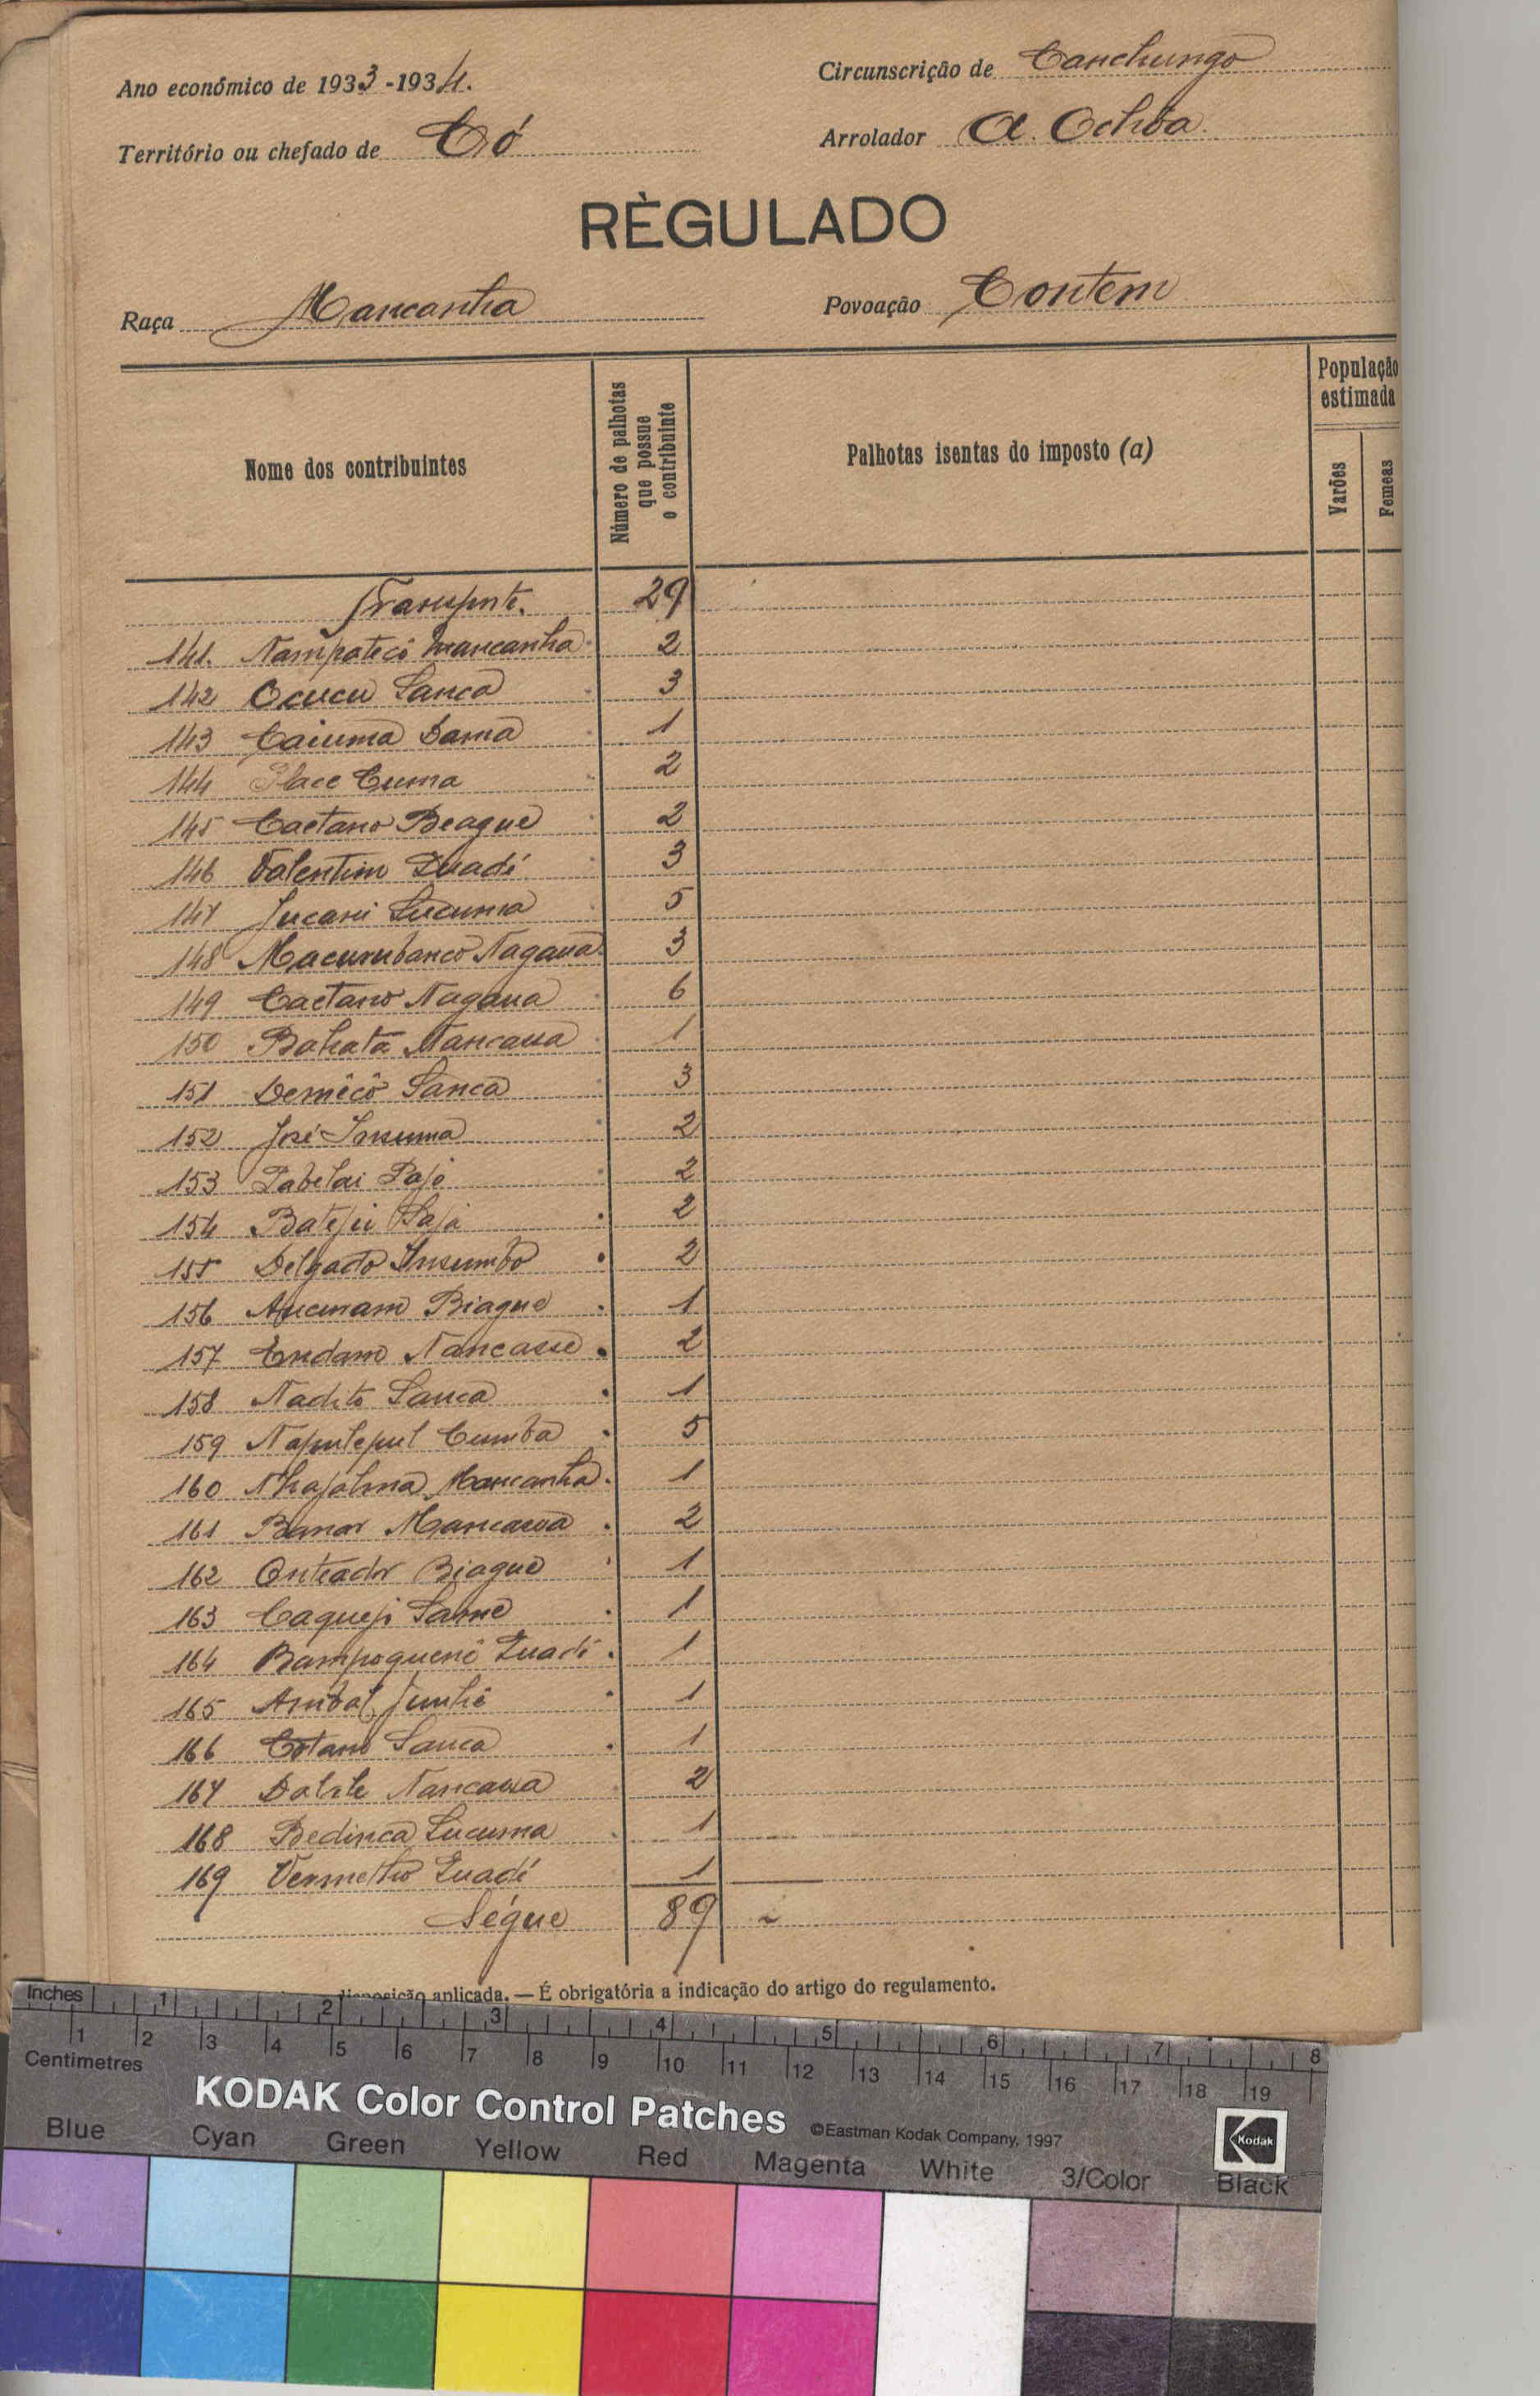 Ano económico de 1933-1934.
Circunscrição de Canchungo
Território ou chefado de Có
Arrolador A. Ochôa
RÈGULADO
Raça Mancanha
Povoação Contem
Nome dos contribuintes
Número de palhotas que possue o contribuinte
Palhotas isentas do imposto (a)
População estimada
Varões
Femeas
Transpte. 29
141. Nampatecô Mancanha 2
142 Ocucu Sanca 3
143 Caiuma Dama 1
144 Place Cuma 2
145 Caetano Beague 2
146 Valentim Zuadi 3
147 Jucani Lucuma 5
148 Macumbanco Nagaua 3
149 Caetano Nagaua 6
150 Bahata Nancaua 1
151 Demêcô Sanca 3
152 José Insuma 2
153 Pabelai Pajo 2
154 Batepi Saja 2
155 Delgado Insumbo 2
156 Aucunam Biague 1
157 Endam Nancasse 2
158 Nadito Sanca 1
159 Napulepul Cumba 5
160 Nhajalma Mancanha 1
161 Banar Mancaua 2
162 Onteador Biague 1
163 Caqueji Same 1
164 Bampoquenê Zuadi 1
165 Anibal Junhê 1
166 Cotam Sanca 1
167 Dalale Nancaua 2
168 Bedinca Lucuma 1
169 Vermelho Zuadi 1
Ségue 89
disposição aplicada. — É obrigatória a indicação do artigo do regulamento.
Inches 1 2 3 4 5 6 7 8
Centimetres 1 2 3 4 5 6 7 8 9 10 11 12 13 14 15 16 17 18 19
KODAK Color Control Patches ©Eastman Kodak Company, 1997
Kodak
Blue Cyan Green Yellow Red Magenta White 3/Color Black